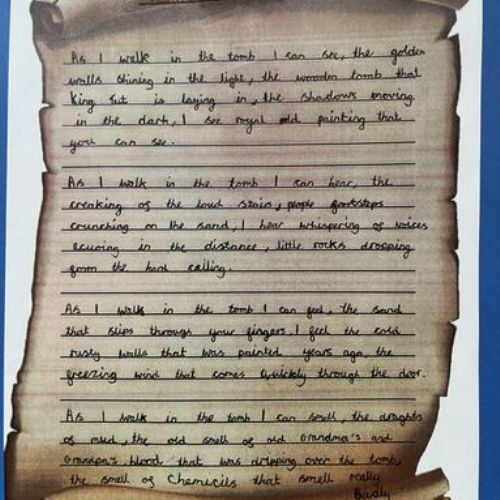 As I walk in the tomb I can see, the golden
walls shining in the light, the wooden tomb that
King Tut is laying in, the shadows moving
in the dark, I see royal old painting that
you can see.
As I walk in the tomb I can hear, the
creaking of the loud stairs, people footsteps
crunching on the sand, I hear whispering of voices
ecuring in the distance, little rocks dropping
from the hard ceiling.
As I walk in the tomb I can feel, the sand
that slips through your fingers. I feel the cold
rusty walls that was painted years ago, the
freezing wind that comes quickely through the door.
As I walk in the tomb I can smell, the draghts
of mud, the old smell of old Grandma's and
Grandpa's blood that was dripping over the tomb,
the smell of chemicils that smell really
Badly